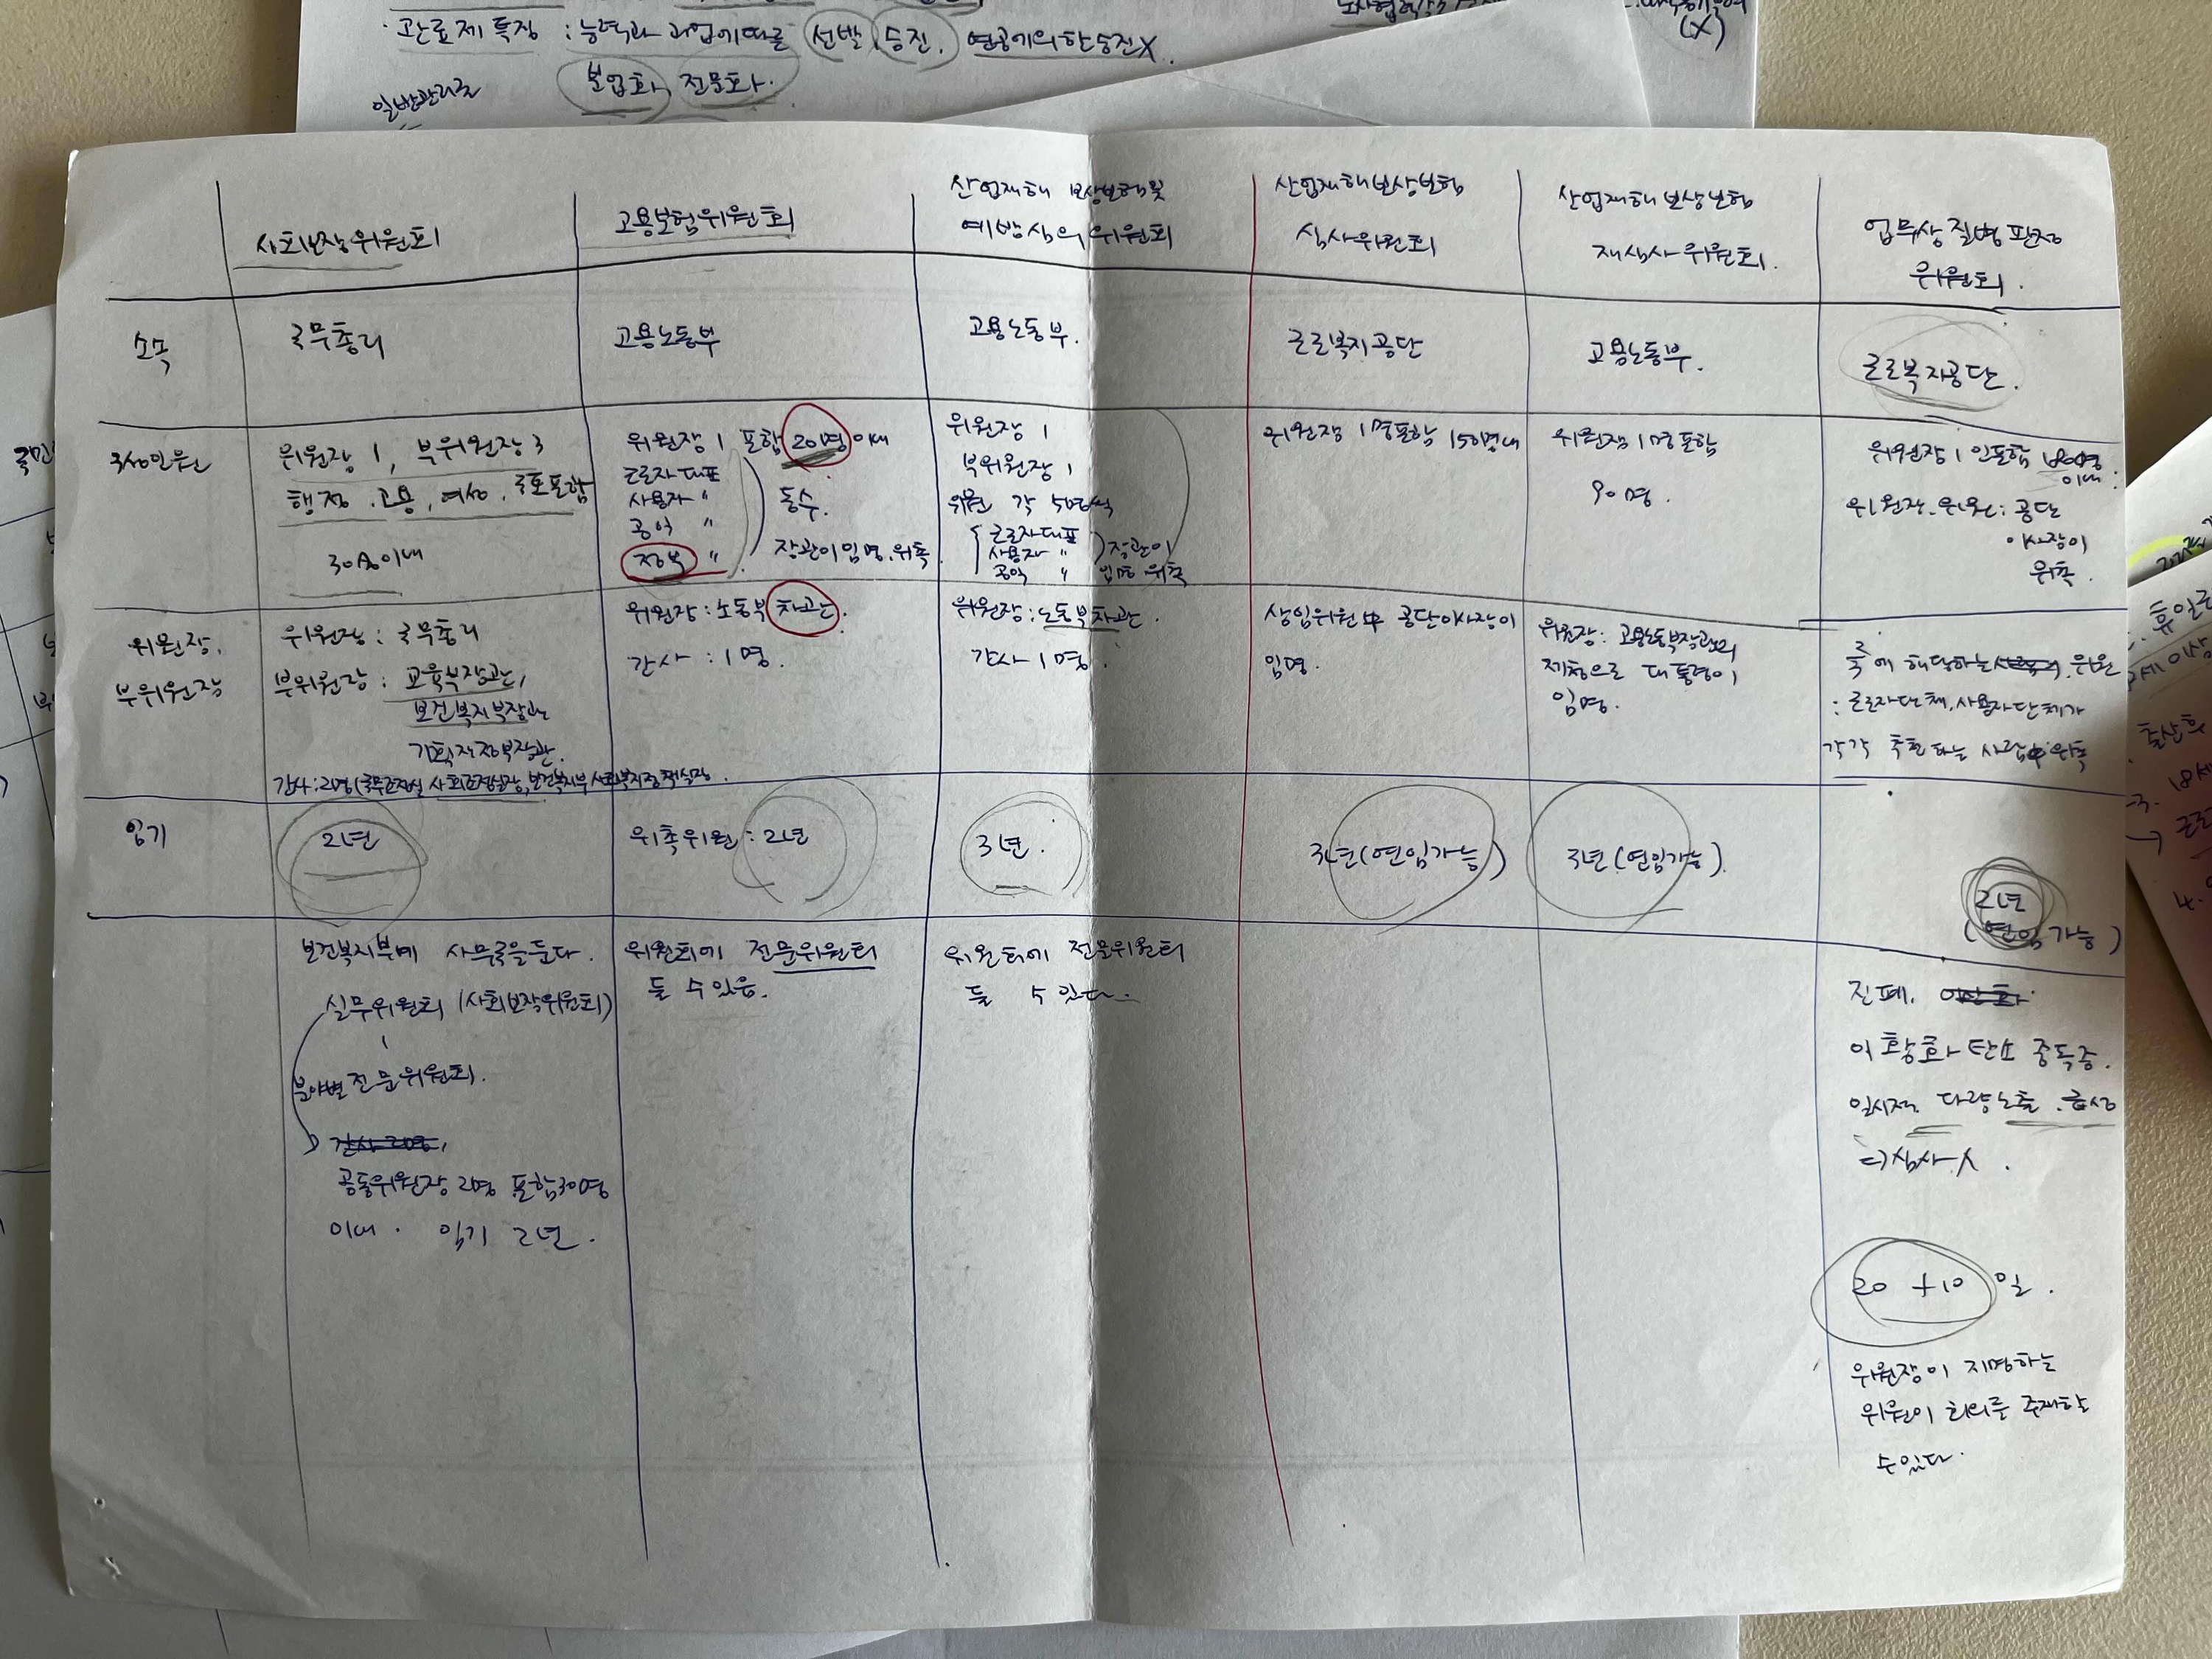 · 관료제 특징 : 능력과 과업에따른 선발, 승진. 연공에의한승진X.
(X)
분업화, 전문화.
일반관리론
사회보장위원회
고용보험위원회
산업재해 보상보험및
예방심의위원회
산업재해보상보험
심사위원회
산업재해보상보험
재심사위원회.
업무상질병판정
위원회.
소속
국무총리
고용노동부
고용노동부.
근로복지공단
고용노동부.
근로복지공단.
구성인원
위원장 1, 부위원장 3
행정.고용, 여성, 국토포함
30명이내
위원장 1 포함 20명이내
근로자대표
사용자 "
공익 "
정부 "
동수.
장관이임명.위촉
위원장 1
부위원장 1
위원 각 5명씩
근로자대표
사용자 "
공익 "
장관이
임명 위촉
위원장 1명포함 150명내
위원장 1명포함
90명.
위원장 1인포함 180명
이내.
위원장.위원: 공단
이사장이
위촉.
위원장,
부위원장
위원장 : 국무총리
부위원장 : 교육부장관,
보건복지부장관
기획재정부장관.
간사:2명(국무조정실 사회조정실장,보건복지부 사회복지정책실장.
위원장 : 노동부 차관.
간사 : 1명.
위원장: 노동부차관.
간사 1명.
상임위원中 공단이사장이
임명.
위원장: 고용노동부장관의
제청으로 대통령이
임명.
에 해당하는 위원
: 근로자단체,사용자단체가
각각 추천하는 사람中위촉
임기
2년
위촉위원 : 2년
3년.
3년(연임가능)
3년(연임가능).
2년
(연임가능)
보건복지부에 사무국을둔다.
실무위원회 (사회보장위원회)
분야별 전문위원회.
간사 2명,
공동위원장 2명 포함30명
이내. 임기 2년.
위원회에 전문위원회
둘 수 있음.
위원회에 전문위원회
둘 수 있다.
진폐.
이황화탄소 중독증.
일시적 다량노출.급성
⇒심사X.
20 +10 일.
위원장이 지명하는
위원이 회의를 주재할
수있다.